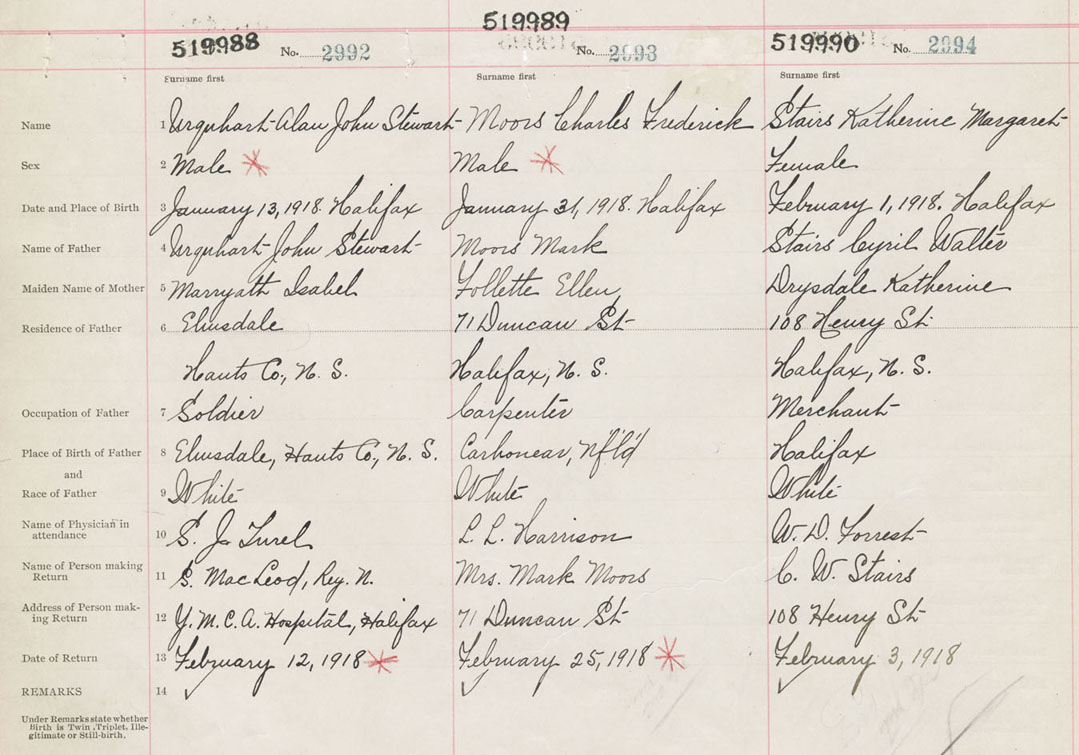 519988 No. 2992 519989 No. 2993 519990 No. 2994
Surname first Surname first Surname first
Name 1 Urquhart Alan John Stewart Moors Charles Frederick Stairs Katherine Margaret
Sex 2 Male Male Female
Date and Place of Birth 3 January 13, 1918. Halifax January 31, 1918. Halifax February 1, 1918. Halifax
Name of Father 4 Urquhart John Stewart Moors Mark Stairs Cyril Walter
Maiden Name of Mother 5 Marryatt Isabel Follette Ellen Drysdale Katherine
Residence of Father 6 Elmsdale 71 Duncan St 108 Henry St
Hants Co., N. S. Halifax, N. S. Halifax, N. S.
Occupation of Father 7 Soldier Carpenter Merchant
Place of Birth of Father 8 Elmsdale, Hants Co., N. S. Carbonear, Nf'l'd Halifax
and
Race of Father 9 White White White
Name of Physician in
attendance 10 S. J. Turel L. L. Harrison W. D. Forrest
Name of Person making
Return 11 S. MacLeod, Reg. N. Mrs. Mark Moors C. W. Stairs
Address of Person mak-
ing Return 12 Y. M. C. A. Hospital, Halifax 71 Duncan St 108 Henry St
Date of Return 13 February 12, 1918 February 25, 1918 February 3, 1918
REMARKS 14
Under Remarks state whether
Birth is Twin, Triplet, Ille-
gitimate or Still-birth.